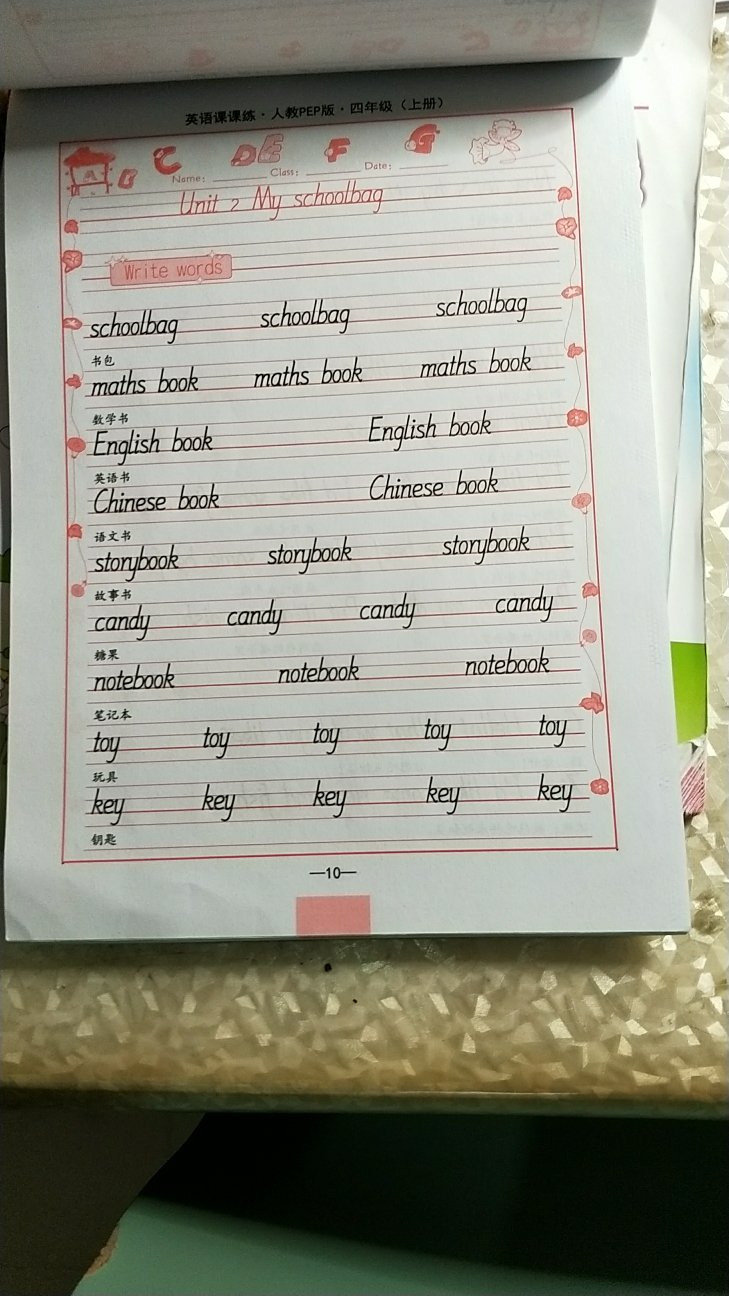 英语课课练·人教PEP版·四年级（上册）
A B C D E F G
Name: Class: Date:
Unit 2 My schoolbag
Write words
schoolbag schoolbag schoolbag
书包
maths book maths book maths book
数学书
English book English book
英语书
Chinese book Chinese book
语文书
storybook storybook storybook
故事书
candy candy candy candy
糖果
notebook notebook notebook
笔记本
toy toy toy toy toy
玩具
key key key key key
钥匙
—10—